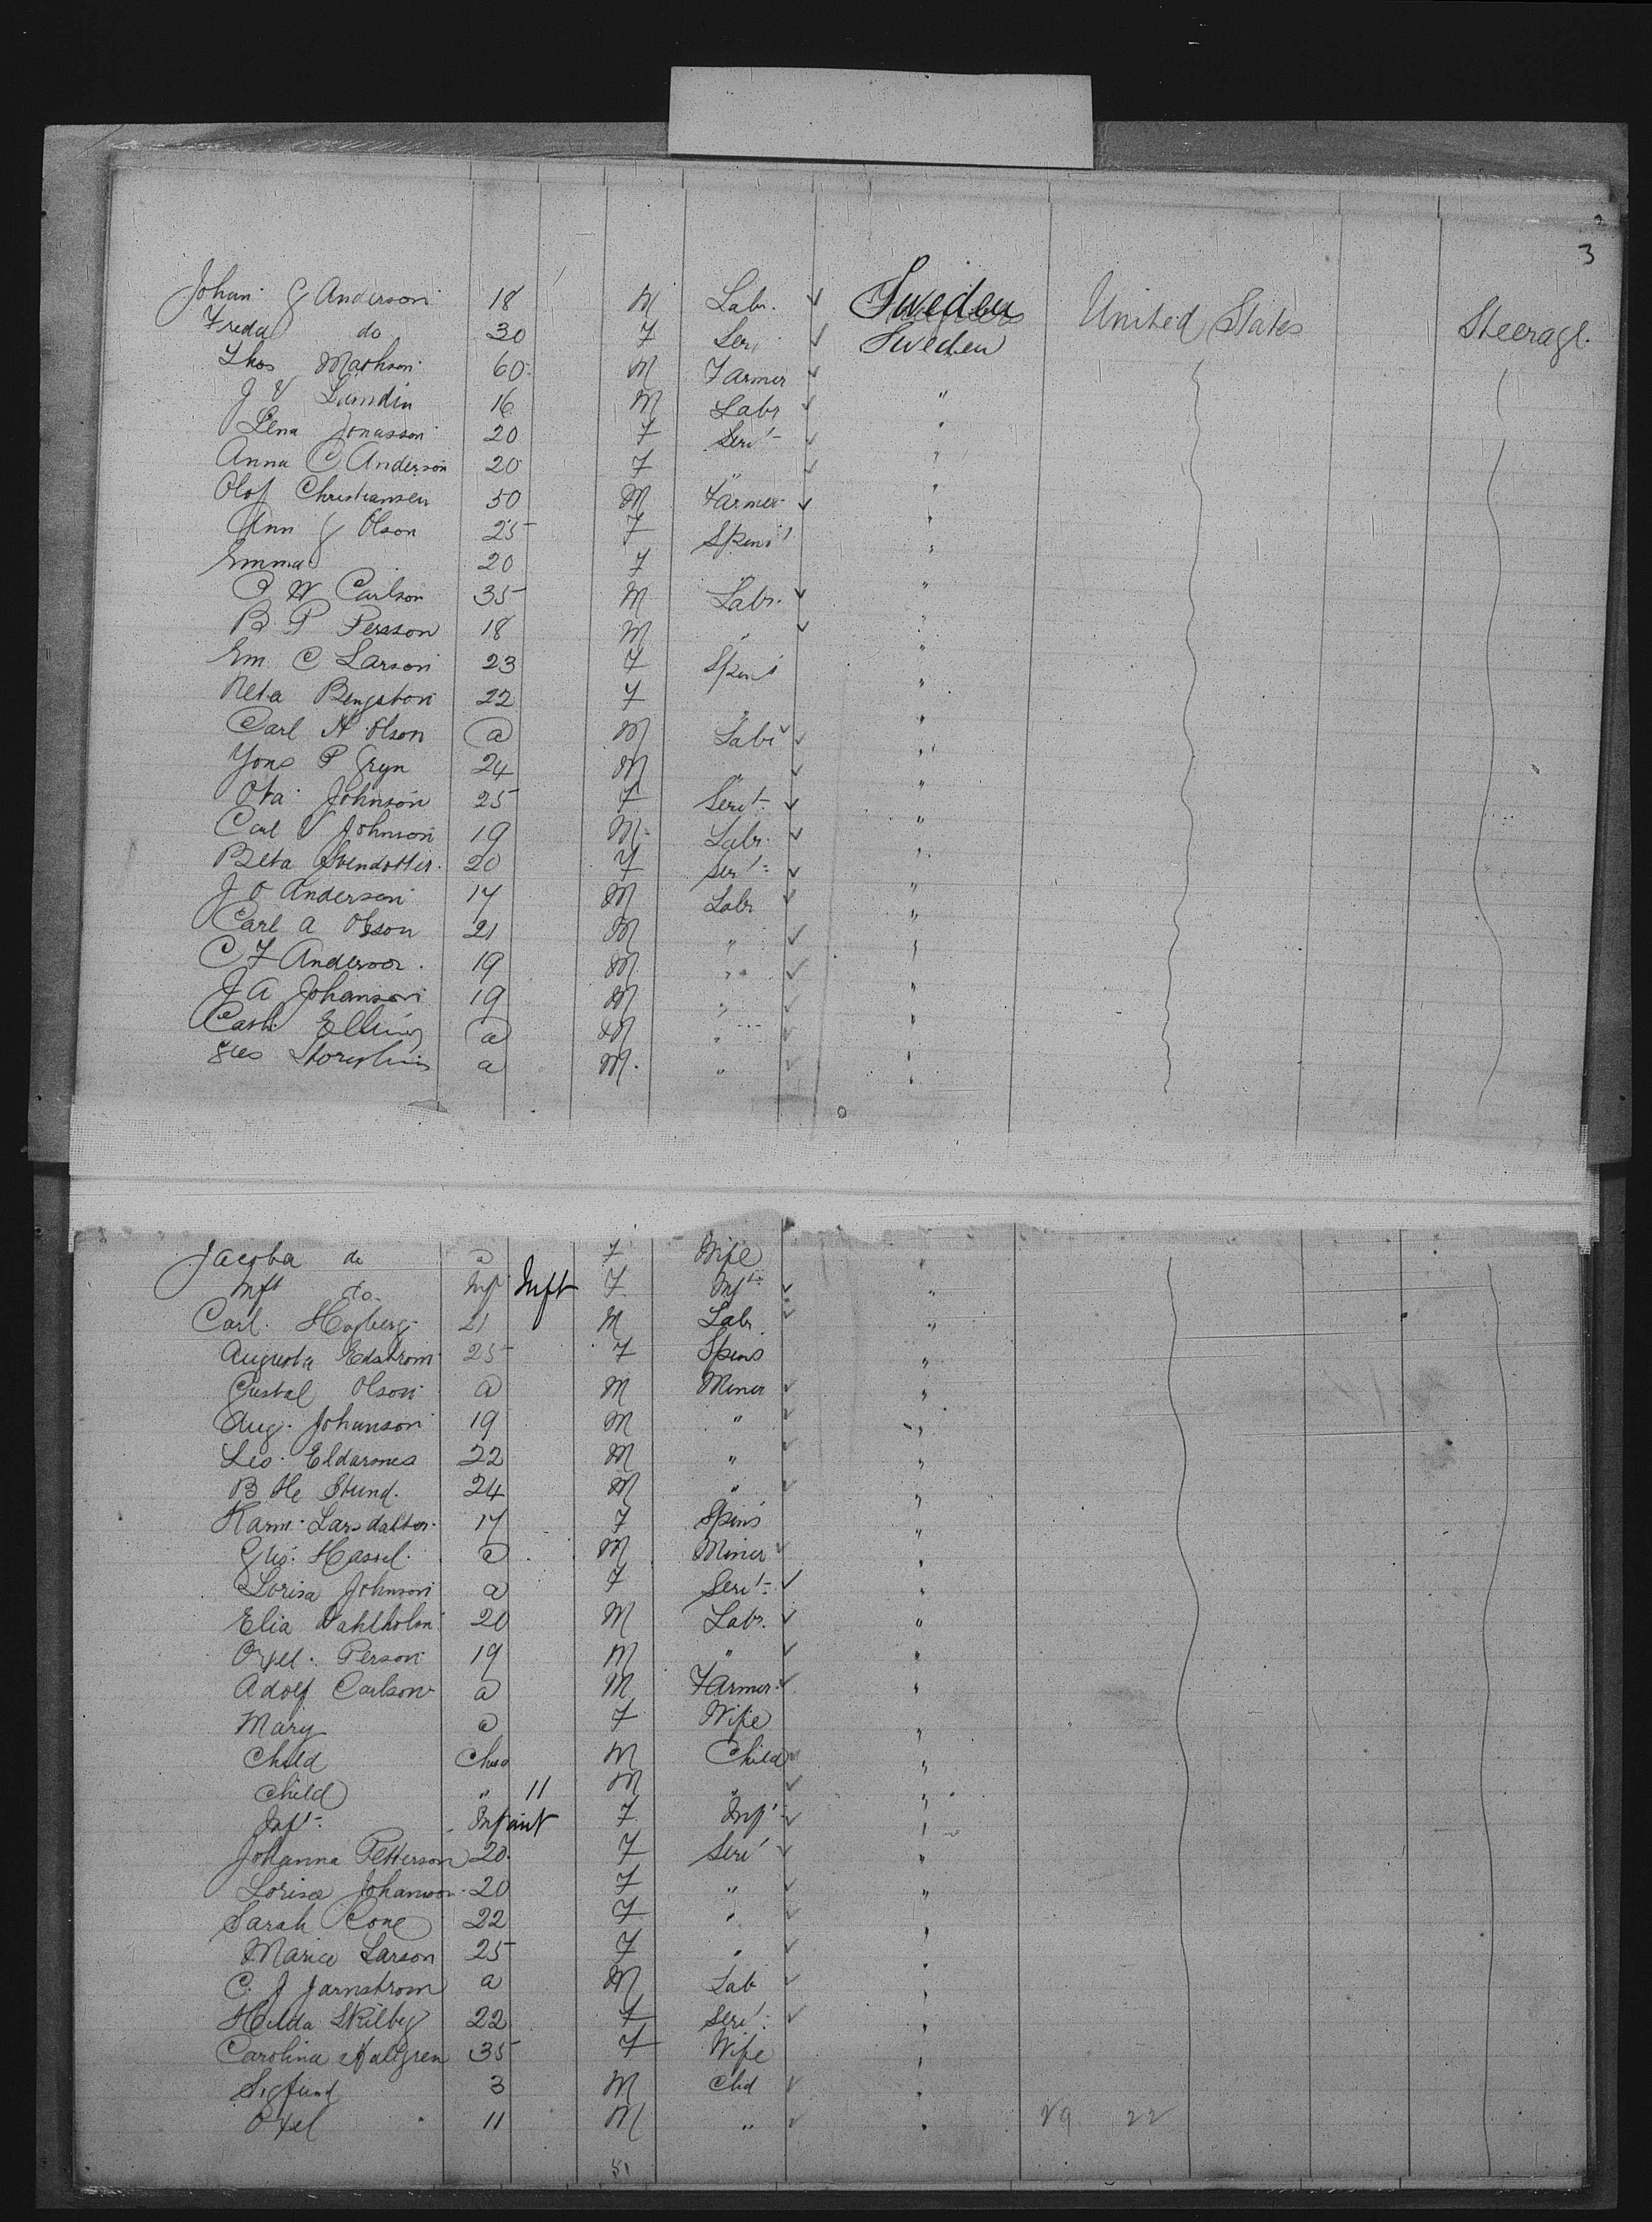 3
Johan G Anderson 18 M Labr. Sweden United States Steerage
Freda do 30 F Serv Sweden
Thos Mathson 60 M Farmer "
J V Lundin 16 M Labr "
Lena Jonasson 20 F Servt "
Anna C Anderson 20 F " "
Olof Christiansen 50 M Farmer "
Ann G Olson 25 F Spins "
Emma 20 F " "
C W Carlson 35 M Labr. "
B P Persson 18 M " "
Em C Larson 23 F Spins "
Neta Bengston 22 F " "
Carl H Olson a M Labr "
Jons P Gryn 24 M " "
Ota Johnson 25 F Servt "
Carl V Johnson 19 M Labr "
Beta Svendotter 20 F Servt "
J O Anderson 17 M Labr "
Carl A Olsson 21 M " "
C F Anderson 19 M " "
J A Johanson 19 M " "
Elling a M " "
a M " "
Jacoba do a F Wife "
Inft do Inft Inft F Inft "
Carl Hogberg 21 M Labr "
Augusta Edstrom 25 F Spins "
Gustal Olson a M Miner "
Aug. Johanson 19 M " "
Leo. 22 M " "
B He Stund. 24 M " "
Karin Larsdatter 17 F Spins "
Hassel a M Miner "
Lorisa Johnson a F Servt "
Elia Dahlholm 20 M Labr. "
Oxel Person 19 M " "
Adolf Carlson a M Farmer "
Mary a F Wife "
Child Child M Child "
Child " 11 M " "
Inft Infant F Inft "
Johanna Petterson 20 F Serv "
Lorisa Johanson 20 F " "
Sarah Cone 22 F " "
Maria Larson 25 F " "
C. J Jarnstrom a M Lab "
Hilda Skilby 22 F Servt "
Carolina Hallgren 35 F Wife "
Sigfund 3 M Chd "
Oxel 11 M " " 29 22
51